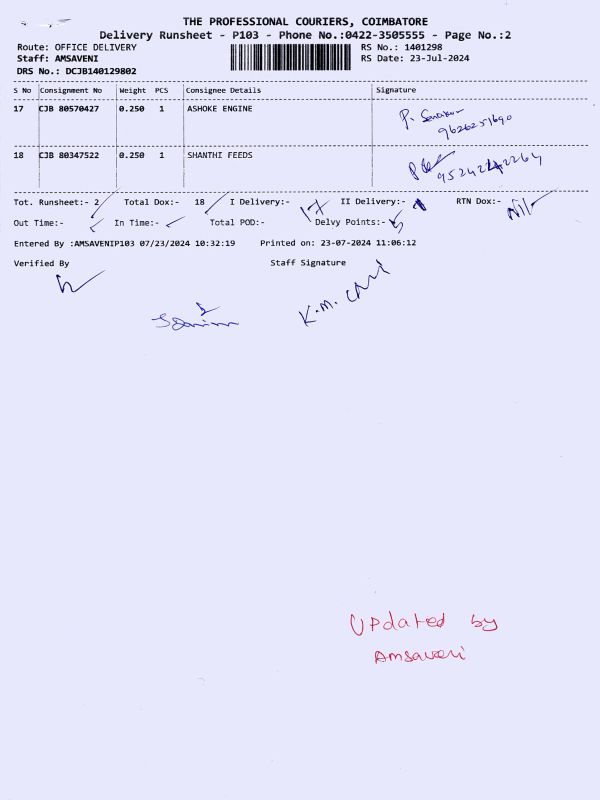 THE PROFESSIONAL COURIERS, COIMBATORE
Delivery Runsheet - P103 - Phone No.:0422-3505555 - Page No.:2
Route: OFFICE DELIVERY RS No.: 1401298
Staff: AMSAVENI RS Date: 23-Jul-2024
DRS No.: DCJB140129802
S No Consignment No Weight PCS Consignee Details Signature
17 CJB 80570427 0.250 1 ASHOKE ENGINE
P.
9626251690
18 CJB 80347522 0.250 1 SHANTHI FEEDS
Tot. Runsheet:- 2 Total Dox:- 18 I Delivery:- 17 II Delivery:- 1 RTN Dox:- Nil-
Out Time:- In Time:- Total POD:- Delvy Points:-
Entered By :AMSAVENIP103 07/23/2024 10:32:19 Printed on: 23-07-2024 11:06:12
Verified By Staff Signature
K.M.
UPdated by
Amsaveni